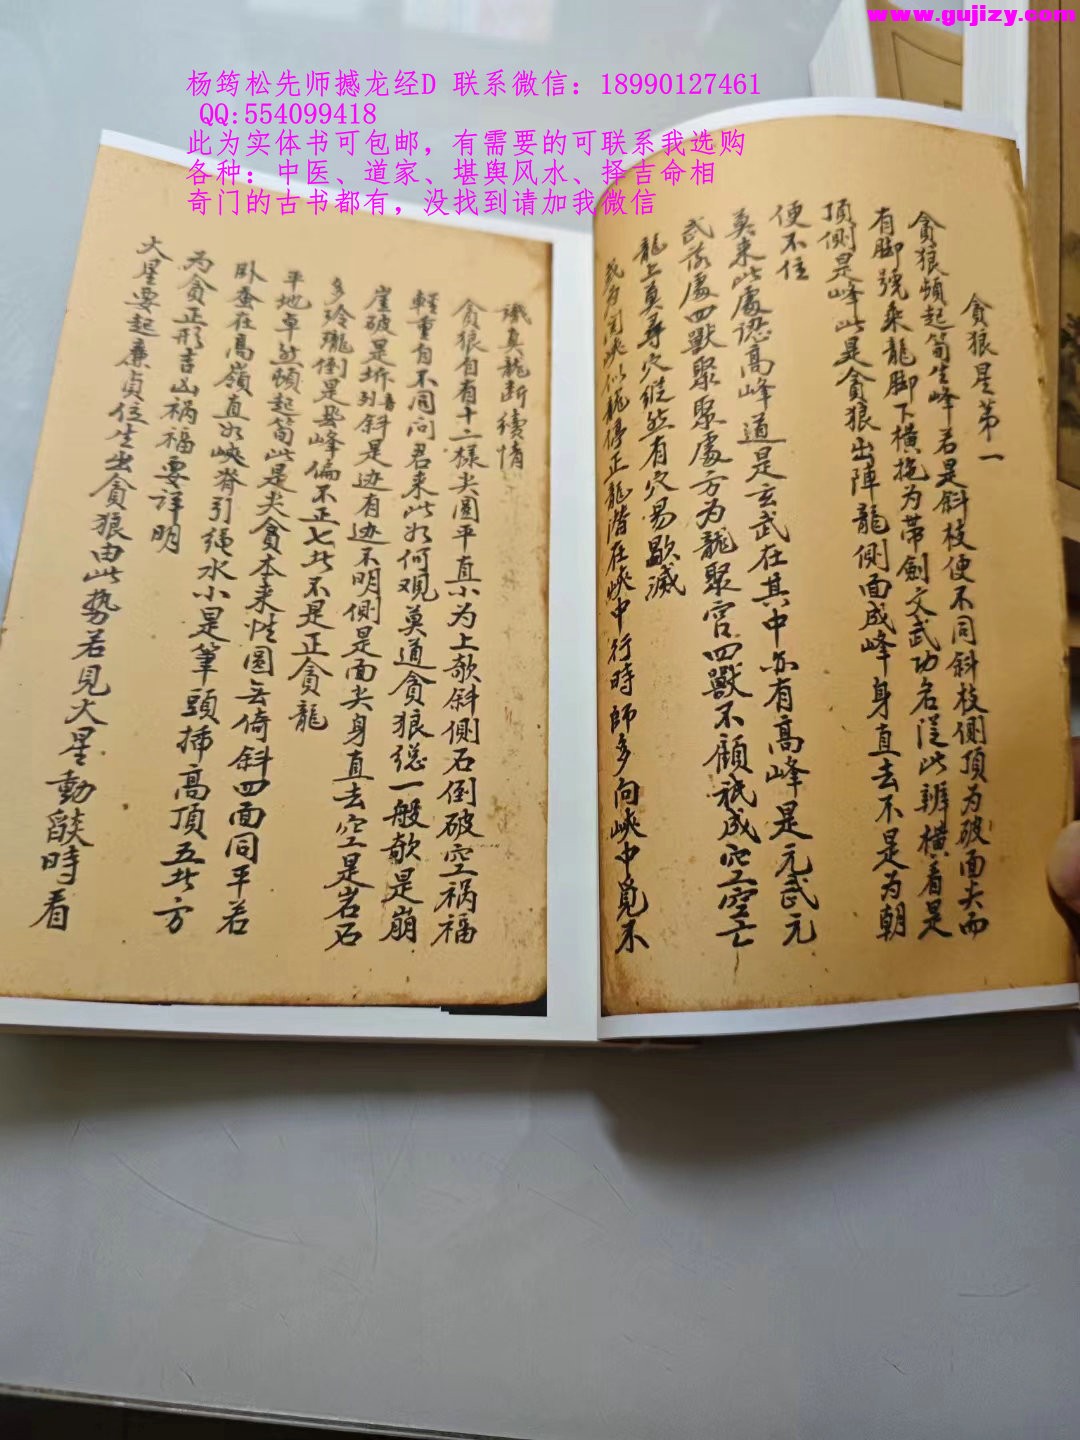 www.gujizy.com
杨筠松先师撼龙经D 联系微信：18990127461
QQ:554099418
此为实体书可包邮，有需要的可联系我选购
各种：中医、道家、堪舆风水、择吉命相
奇门的古书都有，没找到请加我微信
貪狼星第一
貪狼頓起笋生峰若是斜枝便不同斜枝側頂为破面尖而
有脚號乘龍脚下橫拖为帶劍文武功名従此辨橫看是
頂側是峰此是貪狼出陣龍側面成峰身直去不是为朝
便不住
莫来此處認高峰道是玄武在其中亦有高峰是元武元
武落處四獸聚聚處方为龍聚宫四獸不顧祇成空空亡
龍上真尋穴縱然有穴易歇滅
龍停正龍潛在峽中行時師多向峽中覓不
識真龍断續情
貪狼自有十二樣尖圓平直小为上欹斜側石倒破空禍福
輕重自不同问君来此如何观莫道貪狼総一般欹是崩
崖破是坼斜是边有边不明側是面尖身直去空是岩石
多玲瓏倒是峰偏不正七此不是正貪龍
平地卓然頓起笋此是尖貪本来性圓无倚斜四面同平若
卧蚕在高嶺直如峽脊引绳水小是筆頭插高頂五此方
为貪正形吉凶禍福要详明
火星要起廉貞位生出貪狼由此势若見火星動燄時看